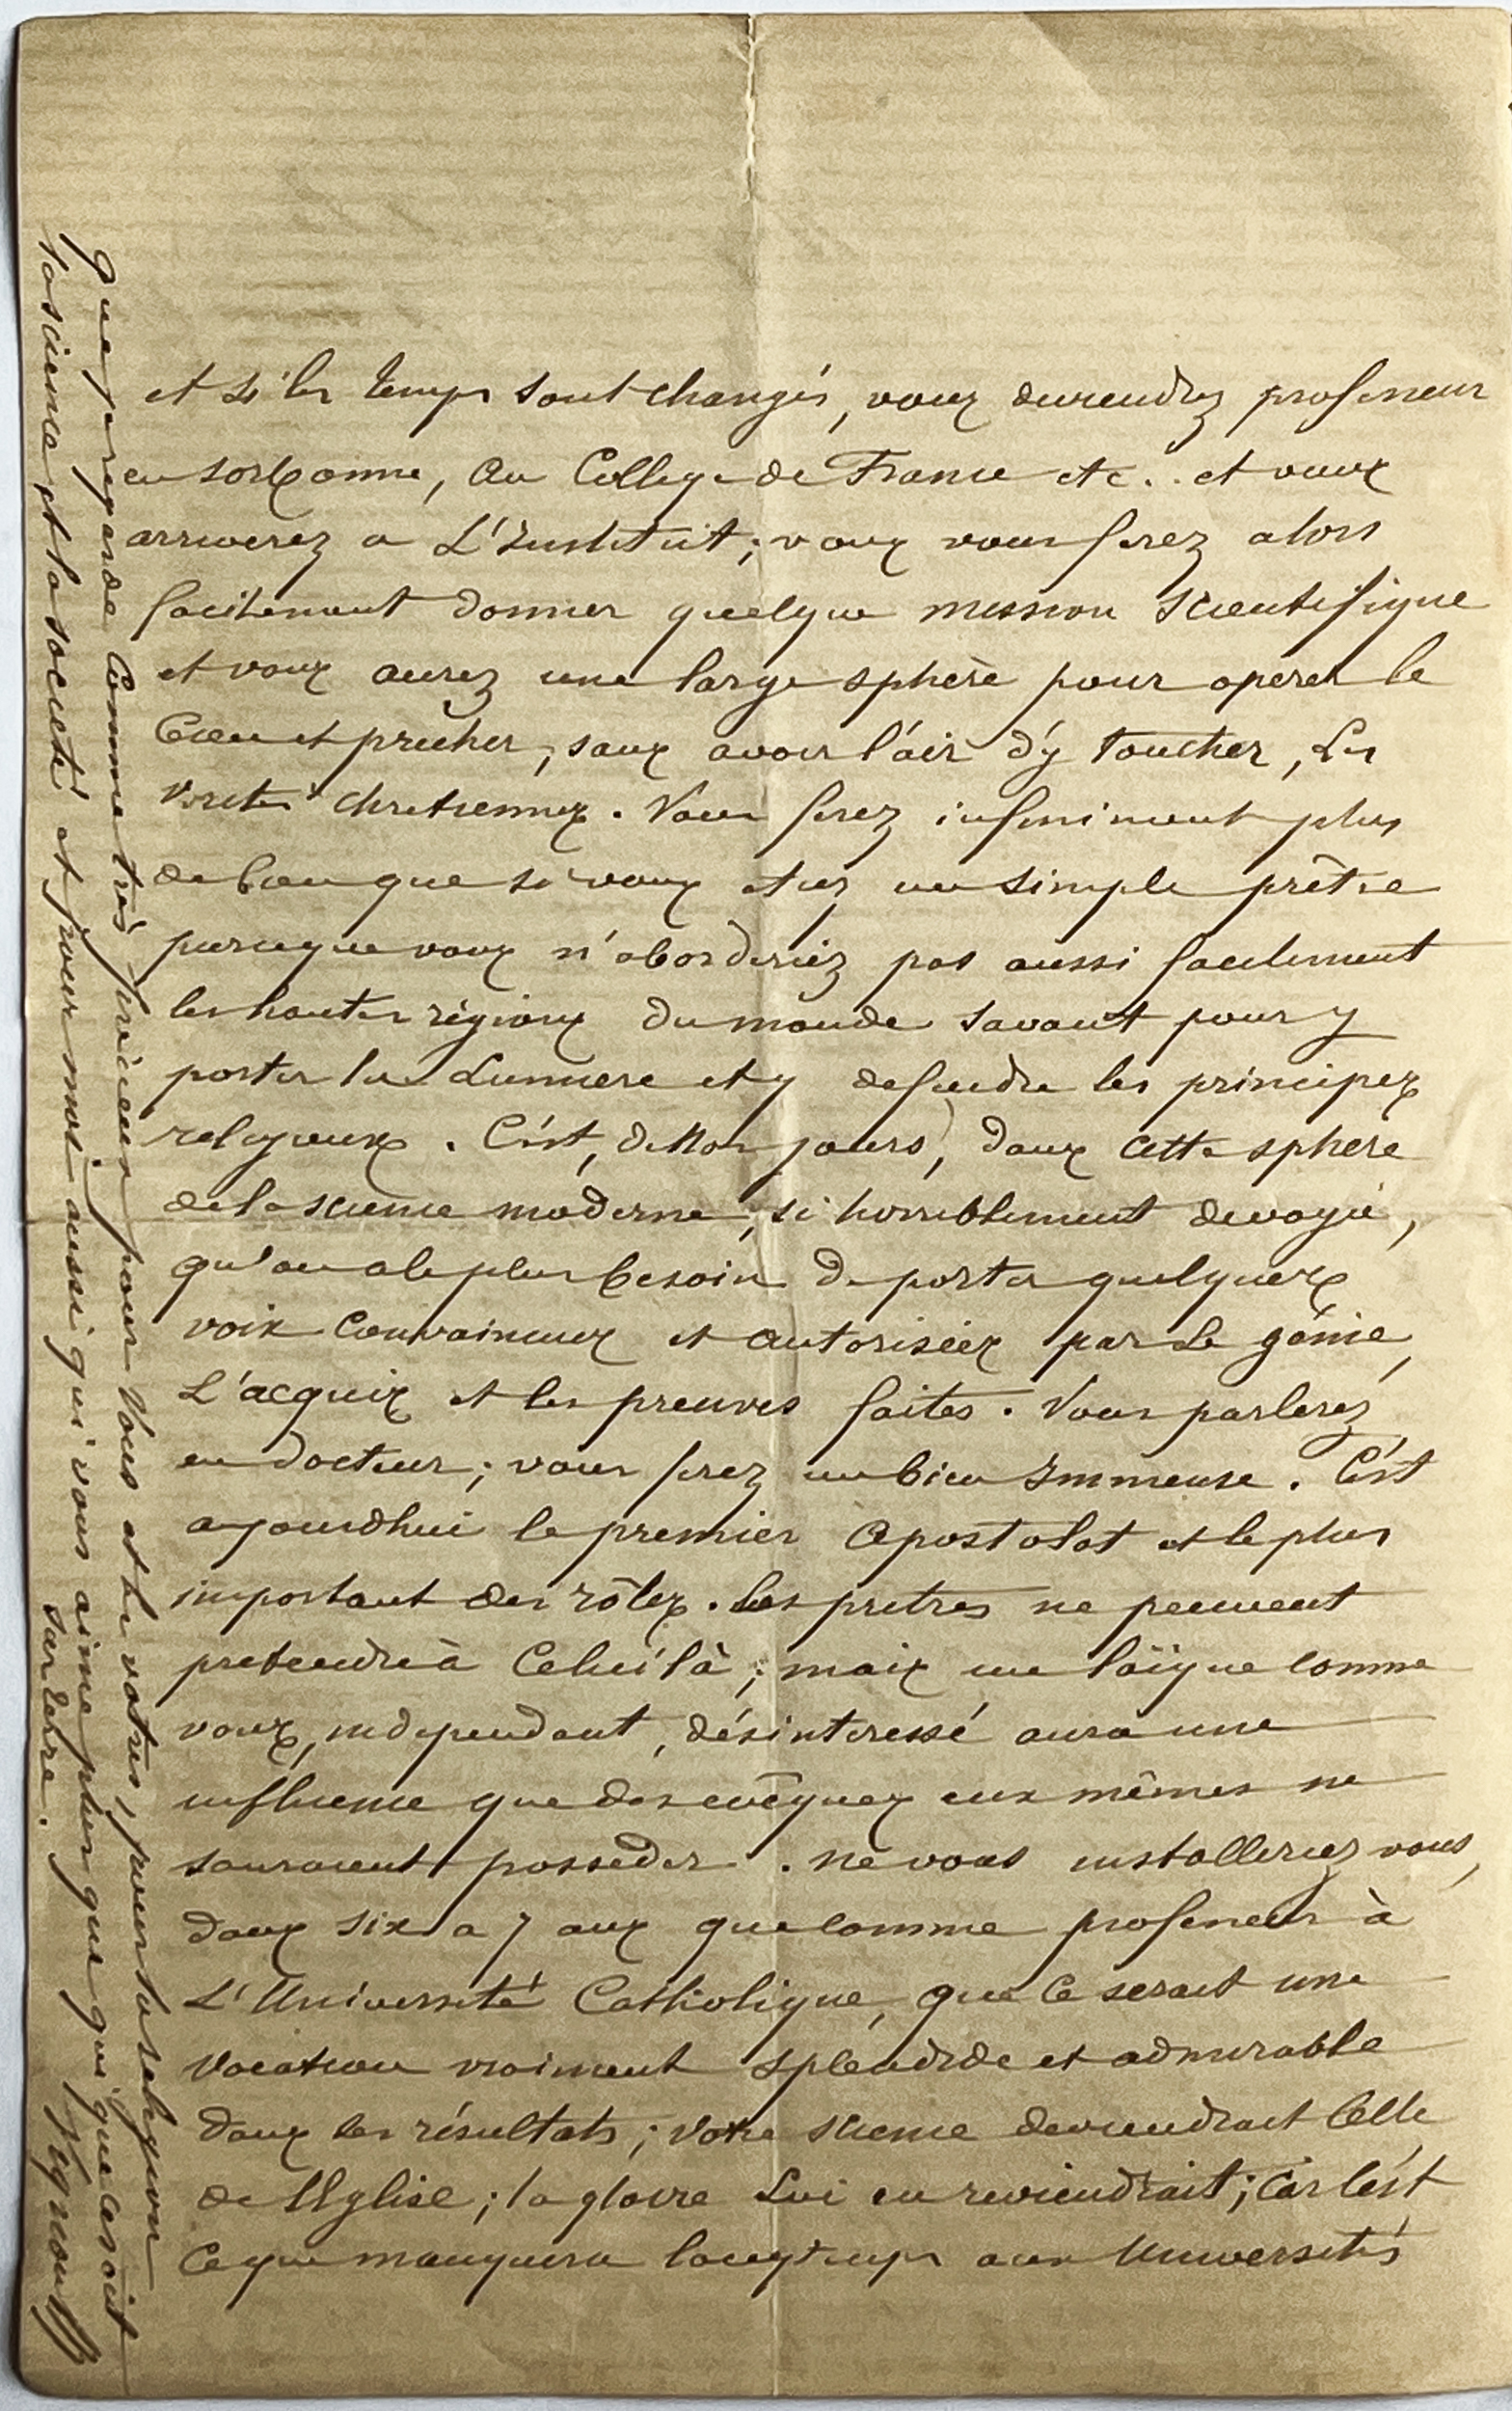 et si les temps sont changés, vous deviendrez professeur
en sorbonne, au College de France etc.. et vous
arriverez a L'Institut; vous vous ferez alors
facilement donner quelque mission scientifique
et vous aurez une large sphère pour operer le
bien et prêcher, sans avoir l'air d'y toucher, les
verités chretiennes. Vous ferez infiniment plus
de bien que si vous etiez un simple prêtre
parceque vous n'aborderiez pas aussi facilement
les hautes régions du monde savant pour y
porter la Lumiere et y defendre les principes
religieux. C'est, de Nos jours, dans cette sphere
de la science moderne, si horriblement devoyée,
qu'on a le plus besoin de porter quelques
voix convaincues et autorisées par Le génie,
L'acquis et les preuves faites. Vous parlerez
en docteur; vous ferez un bien Immense. C'est
aujourdhui le premier apostolat et le plus
important des rôles. Les pretres ne peuvent
pretendre à Celui là; mais un laïque comme
vous, independant, désinteressé aura une
influence que des evêques eux mêmes ne
sauraient posseder. ne vous installeriez vous,
dans six a 7 ans que comme professeur à
L'Université Catholique, que ce serait une
vocation vraiment splendide et admirable
dans les résultats; votre science deviendrait Celle
de l'Eglise; la gloire Lui en reviendrait; car c'est
ce qui manquera longtemps aux Universités
que je regarde Comme très précieux pour Vous et les votres, pour la religion
la science et la société et pour moi aussi qui vous aime plus que qui que ce soit
sur terre.